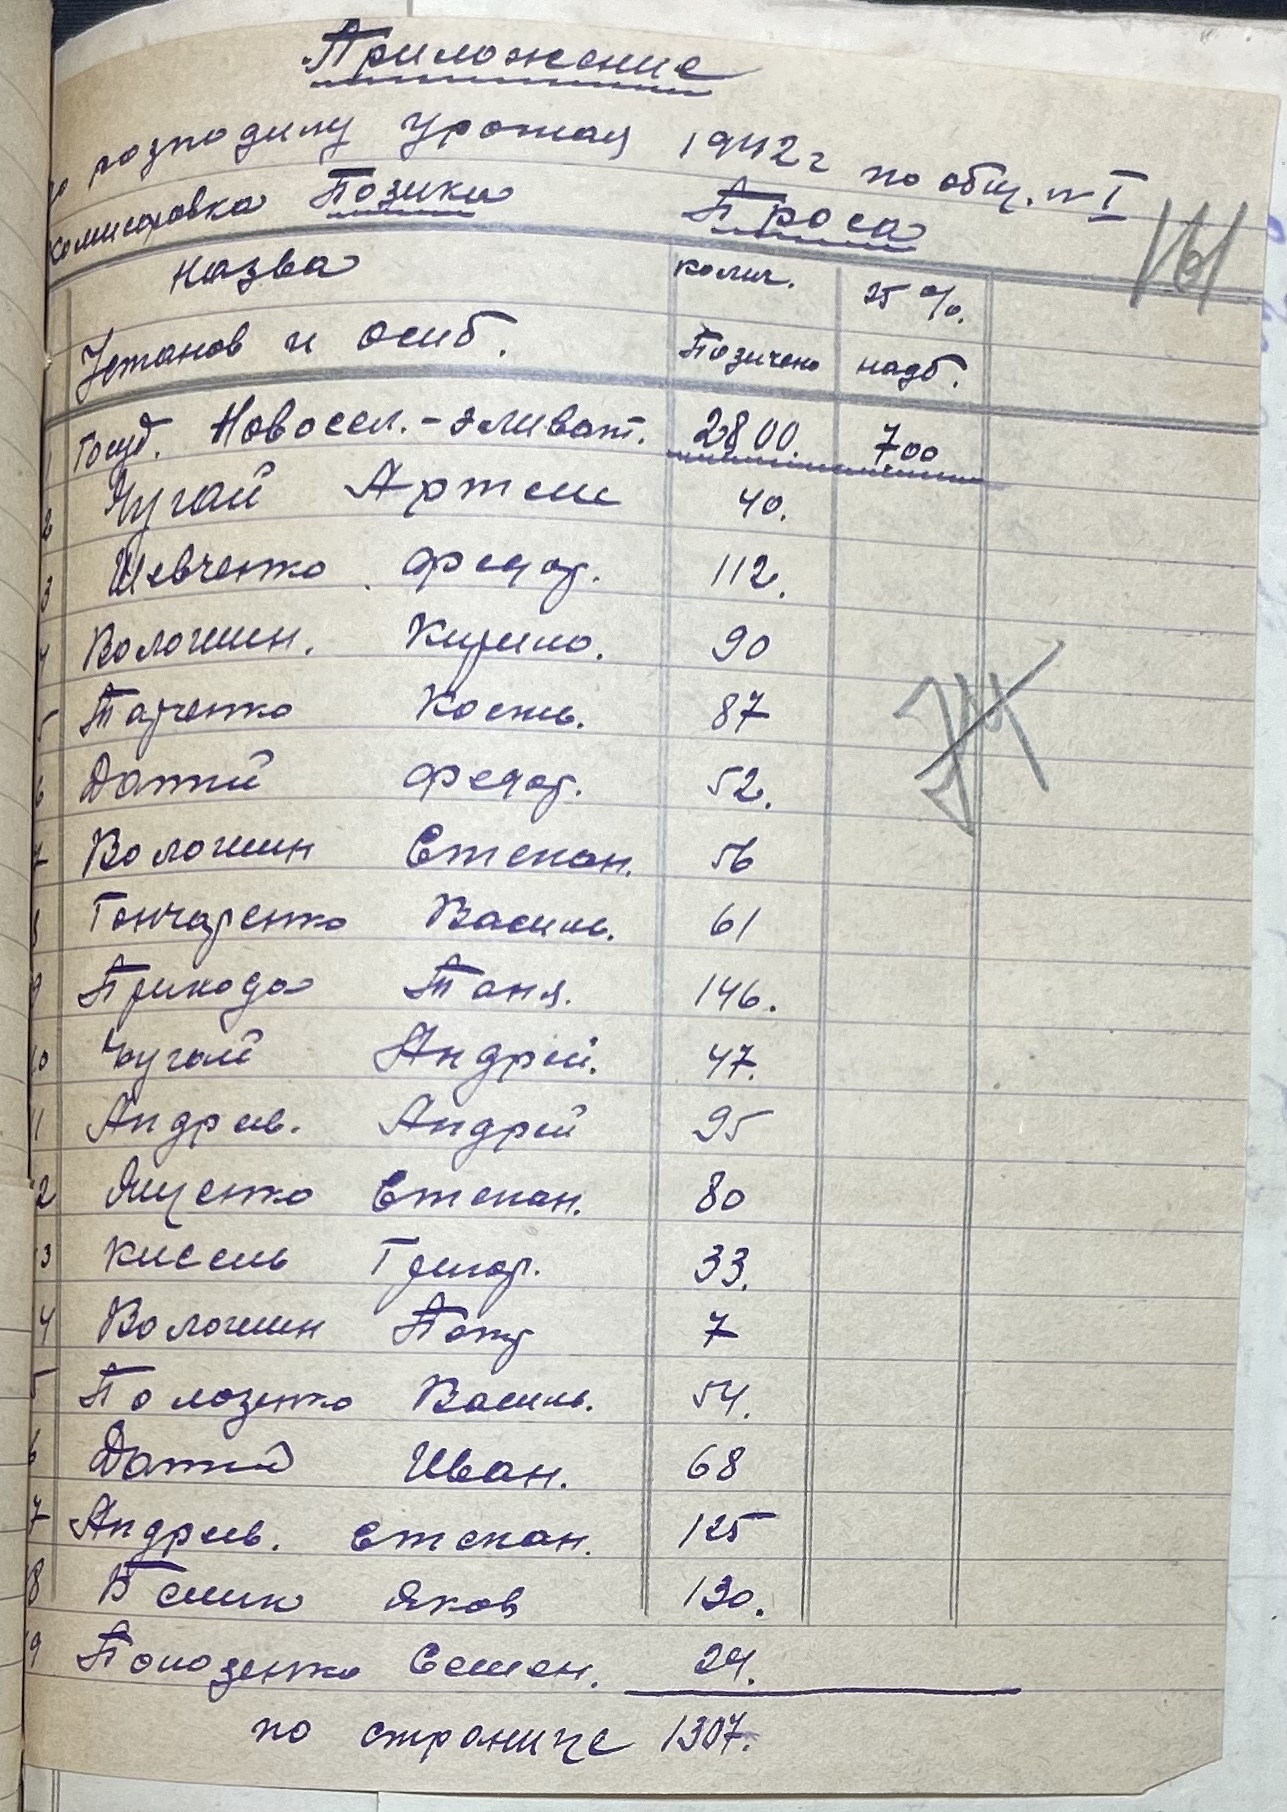 Приложение
до розподилу урожая 1942 г по общ. № I
Позики Проса
161
Назва колич. 25 %.
Установ и осиб. Позичено надб.
1 Госуд. Новосел.-эливат. 2800. 700
2 Чугай Артем 40.
3 Шевченко Федор. 112.
4 Волошин. Кирило. 90
5 Харченко Кость. 87
6 Датий Федор. 52.
7 Волошин Степан. 56
8 Гончаренко Василь. 61
9 Приходо Таня. 146.
10 Чугай Андрей. 47.
11 Андрев. Андрей 95
12 Ященко Степан. 80
13 Кисель Григор. 33.
14 Волошин 7
15 Полозенко Василь. 54.
16 Датий Иван. 68
17 Андреев. Степан. 125
18 Яков 130.
19 Полозенко Семен. 24.
по странице 1307.